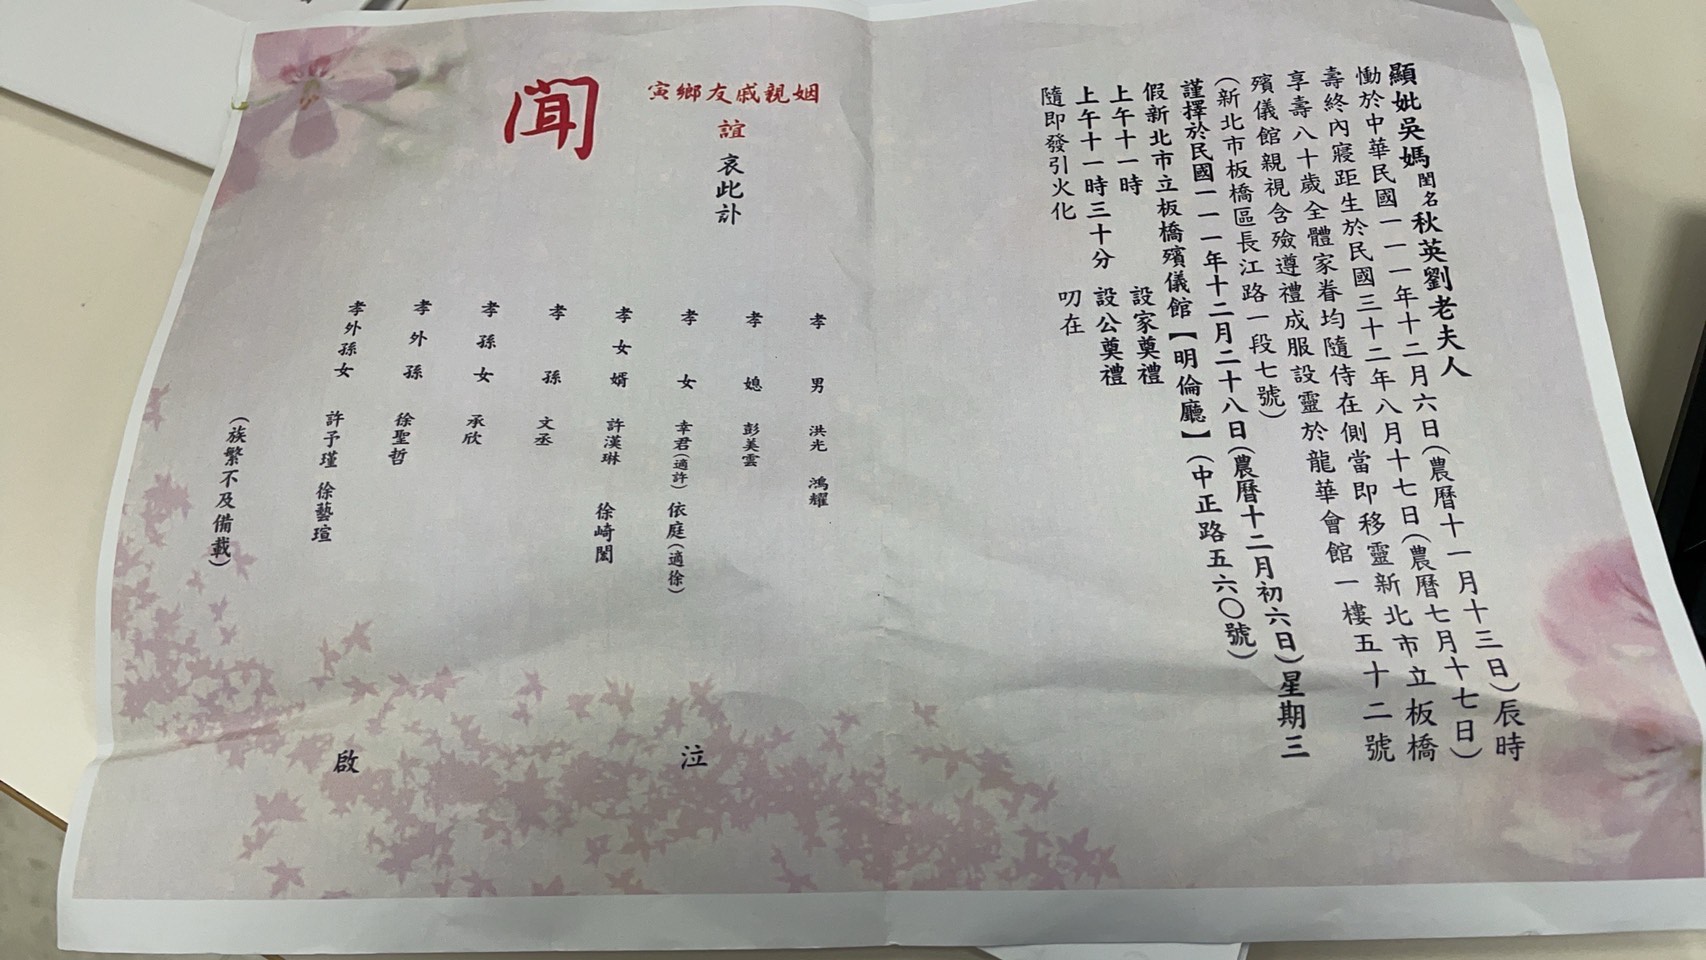 顯妣吳媽閨名秋英劉老夫人
慟於中華民國一一一年十二月六日(農曆十一月十三日)辰時
壽終內寢距生於民國三十二年八月十七日(農曆七月十七日)
享壽八十歲全體家眷均隨侍在側當即移靈新北市立板橋
殯儀館親視含殮遵禮成服設靈於龍華會館一樓五十二號
(新北市板橋區長江路一段七號)
謹擇於民國一一一年十二月二十八日(農曆十二月初六日)星期三
假新北市立板橋殯儀館【明倫廳】(中正路五六〇號)
上午十一時 設家奠禮
上午十一時三十分 設公奠禮
隨即發引火化 叨在
寅鄉友戚親姻
誼 哀此訃
聞
孝男 洪光 鴻耀
孝媳 彭美雲
孝女 幸君(適許) 依庭(適徐)
孝女婿 許漢琳 徐崎閎
孝孫 文丞
孝孫女 承欣
孝外孫 徐聖哲
孝外孫女 許予瑾 徐藝瑄
(族繁不及備載)
泣
啟